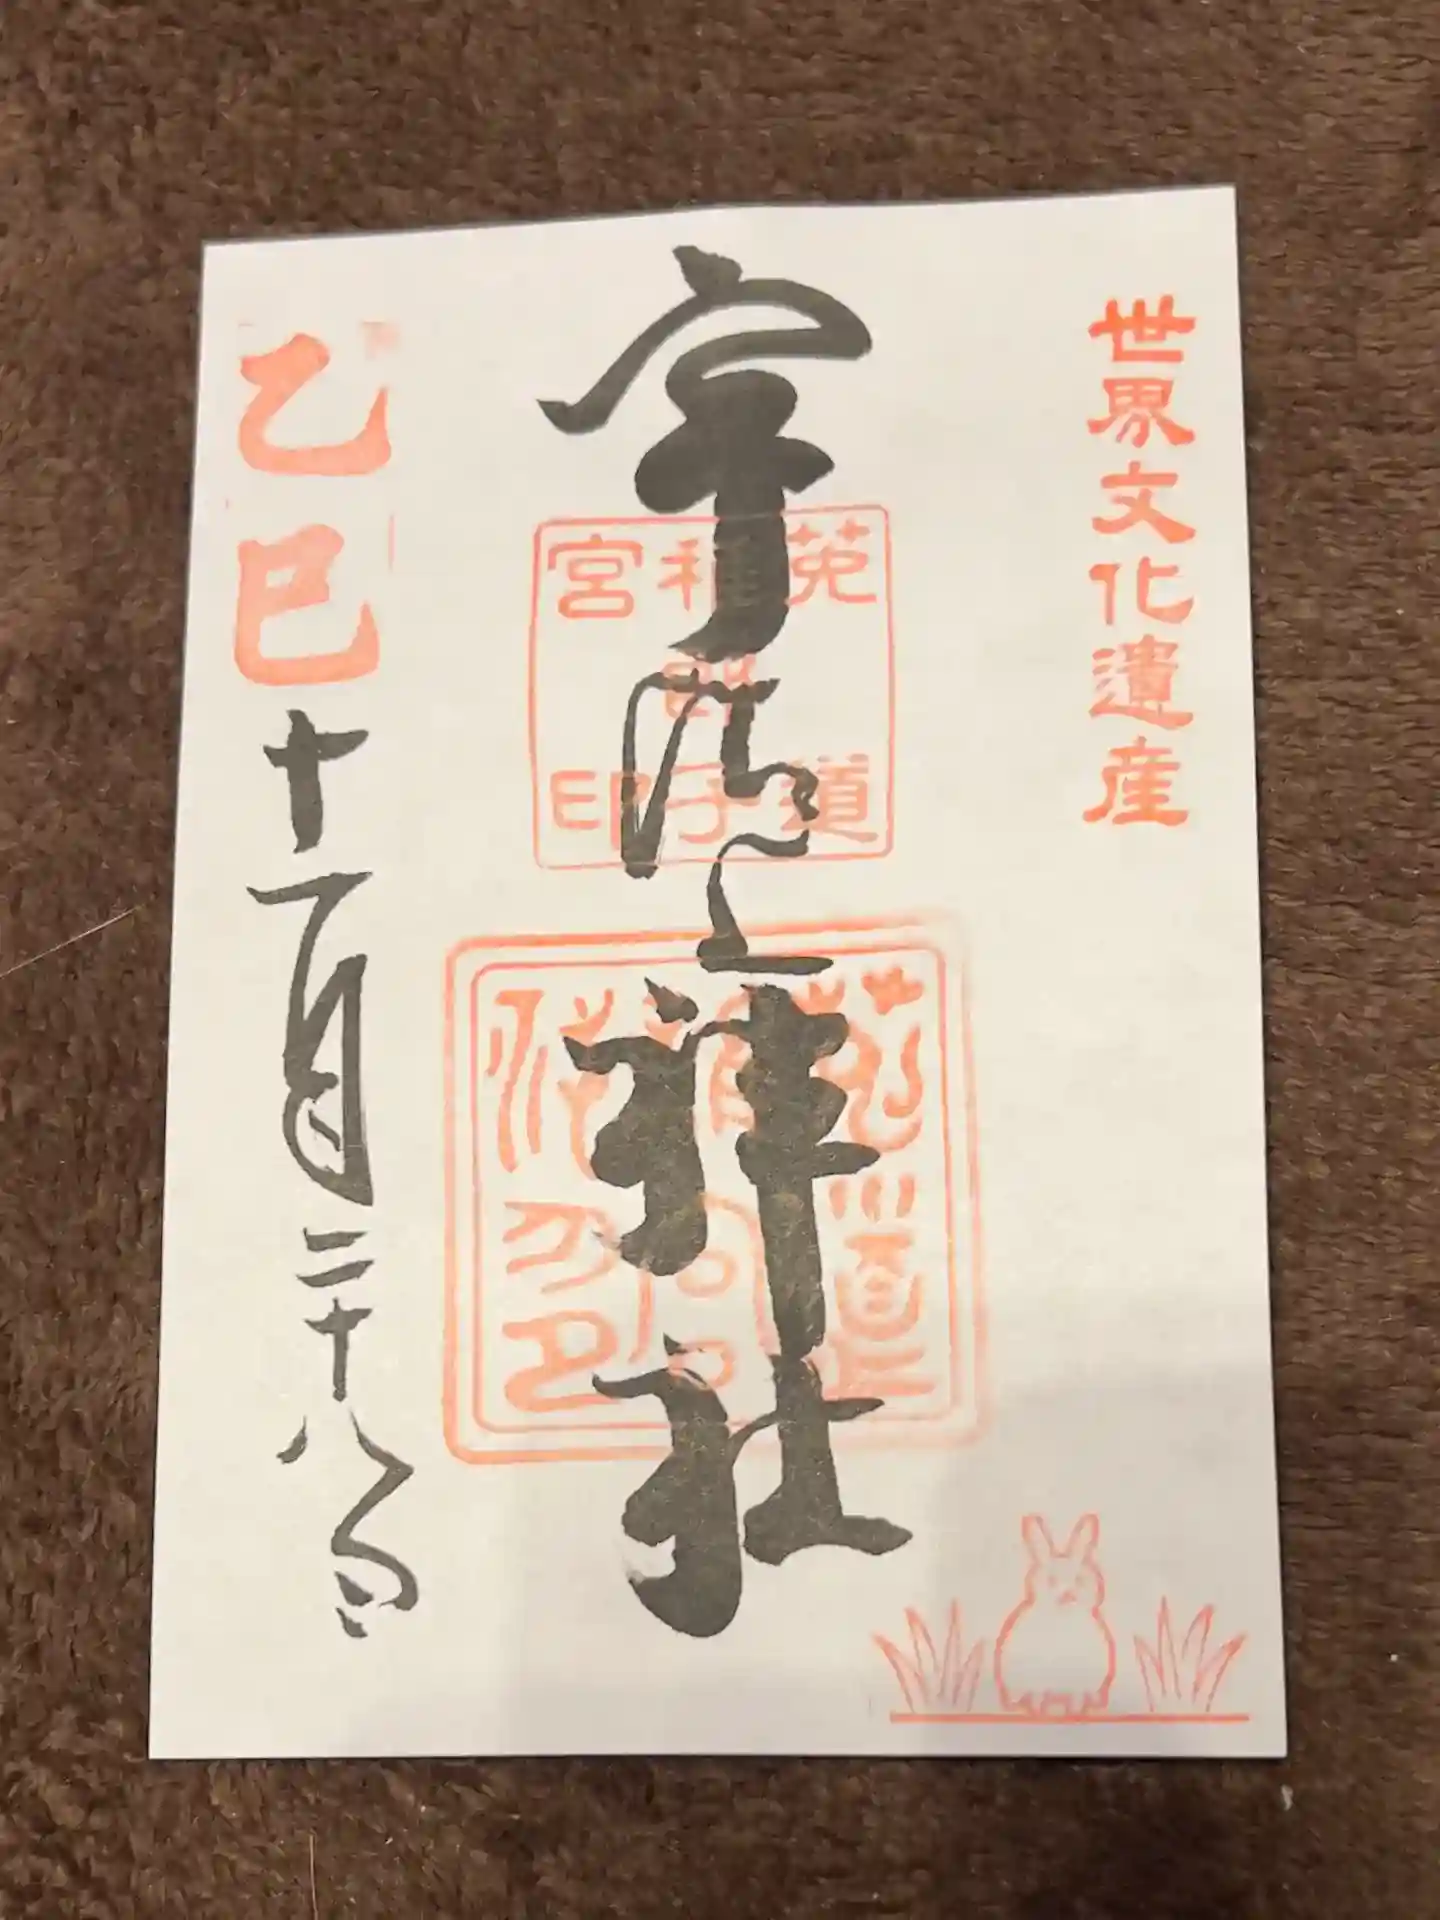 世界文化遺産
宇治上神社
菟道
稚郎子
宮印
乙巳十一月二十八日